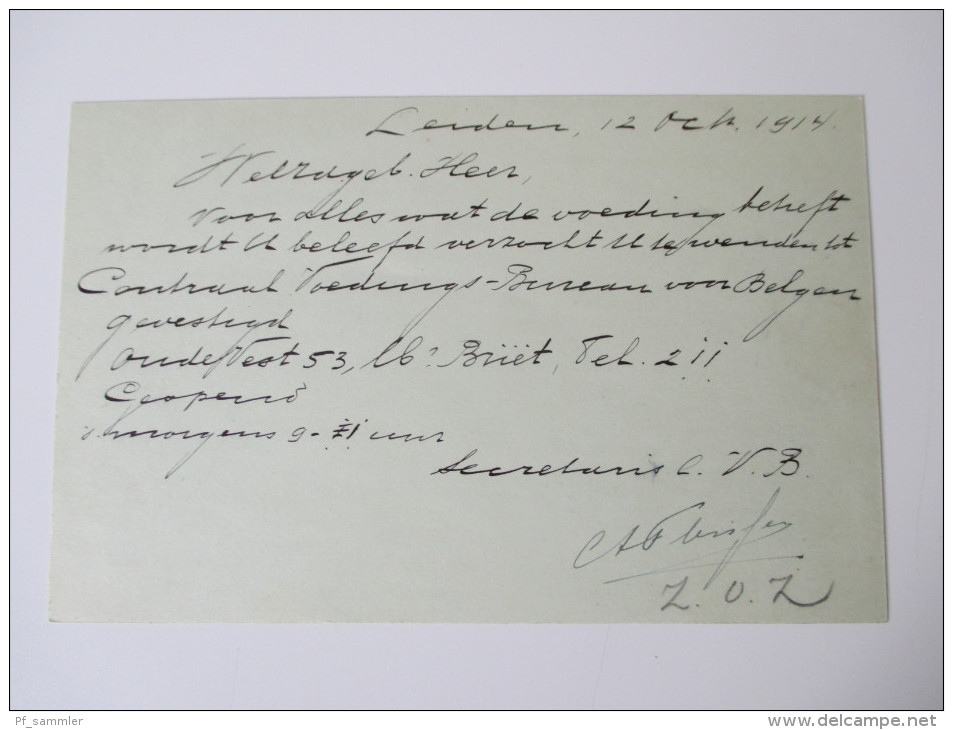 Leiden, 12 Oct. 1914.
Welzdgeb. Heer,
Voor alles wat de voeding betreft
wordt U beleefd verzocht U te wenden tot
Centraal Voedings-Bureau voor Belgen
gevestigd
Oude Vest 53, Briët, Tel. 211
Geopend
's morgens 9- uur
Secretaris C. V. B.
Z. O. Z
Pf_sammler
www.delcampe.net